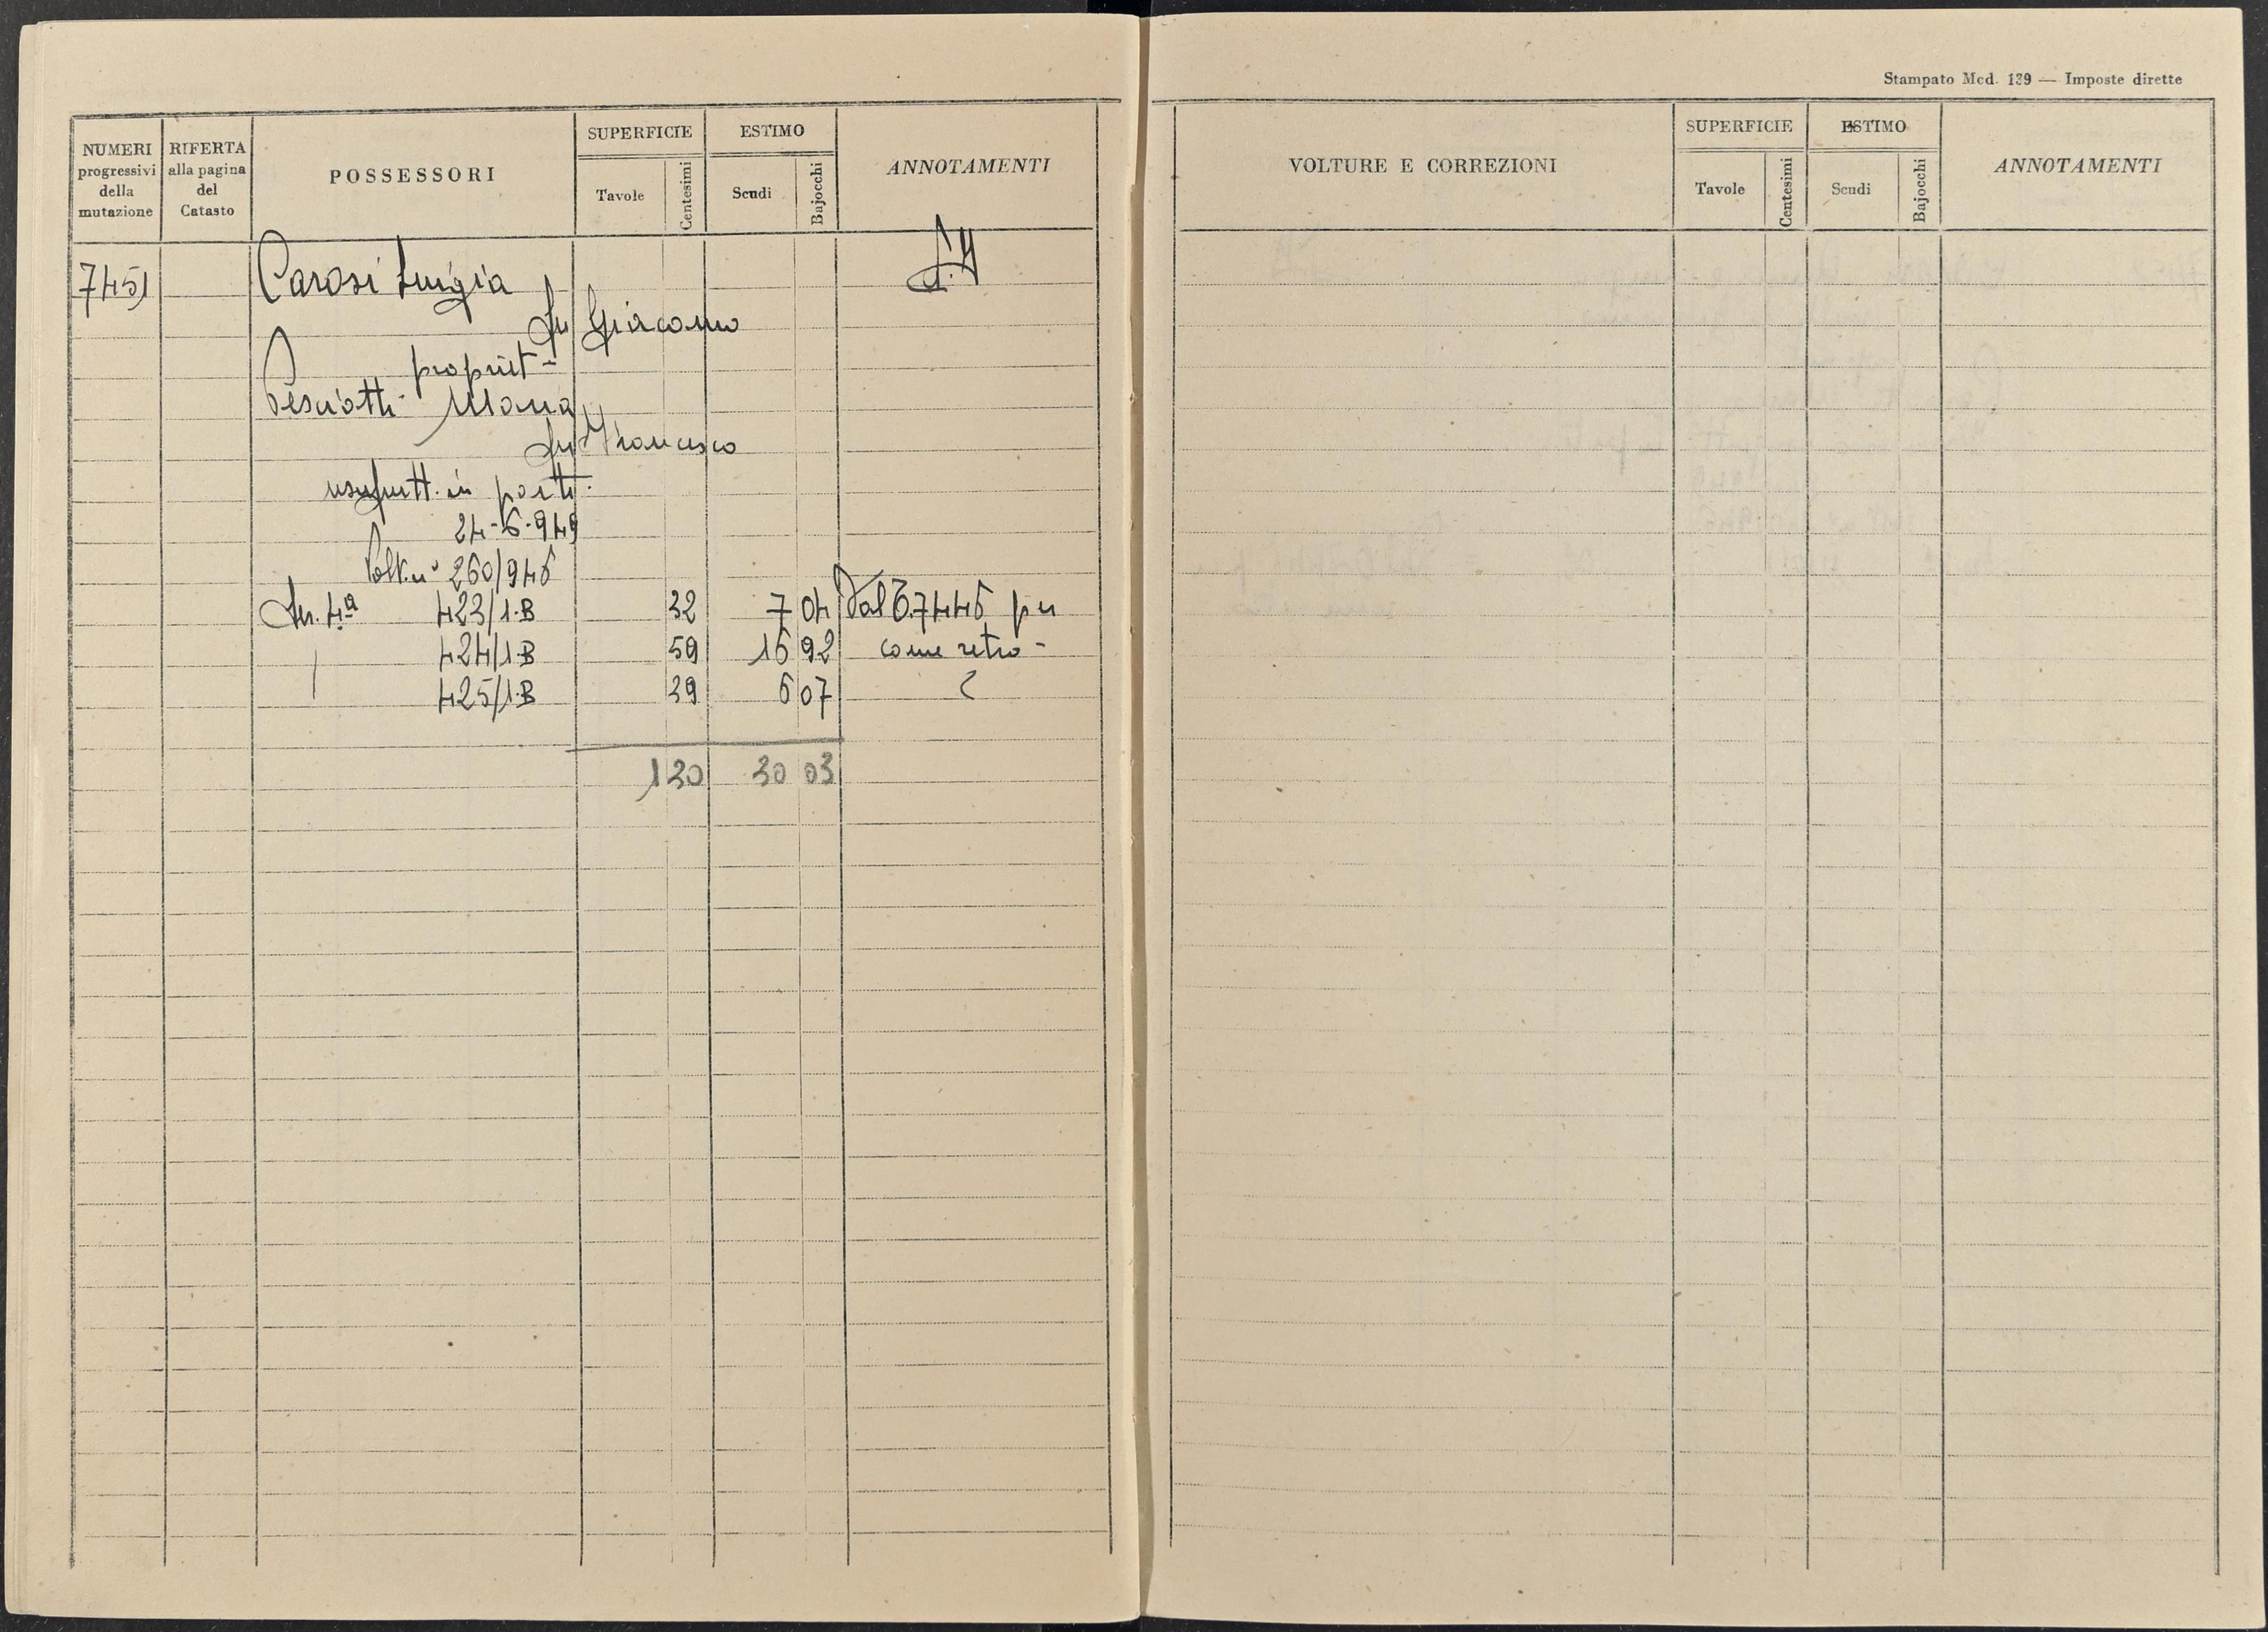 Stampato Mod. 139 — Imposte dirette
NUMERI progressivi della mutazione
RIFERTA alla pagina del Catasto
POSSESSORI
SUPERFICIE
Tavole
Centesimi
ESTIMO
Scudi
Bajocchi
ANNOTAMENTI
VOLTURE E CORREZIONI
SUPERFICIE
Tavole
Centesimi
ESTIMO
Scudi
Bajocchi
ANNOTAMENTI
7451 Carosi Luigia
fu Giacomo
propriet-
Maria
fu Francesco
usufrutt. in parte.
24-6-949
Volt. n° 260/946
Sez. 4ª 423/1·B 32 7 04 Dal C. 7446 per
424/1·B 59 16 92 come retro -
425/1·B 39 6 07
1 30 30 03